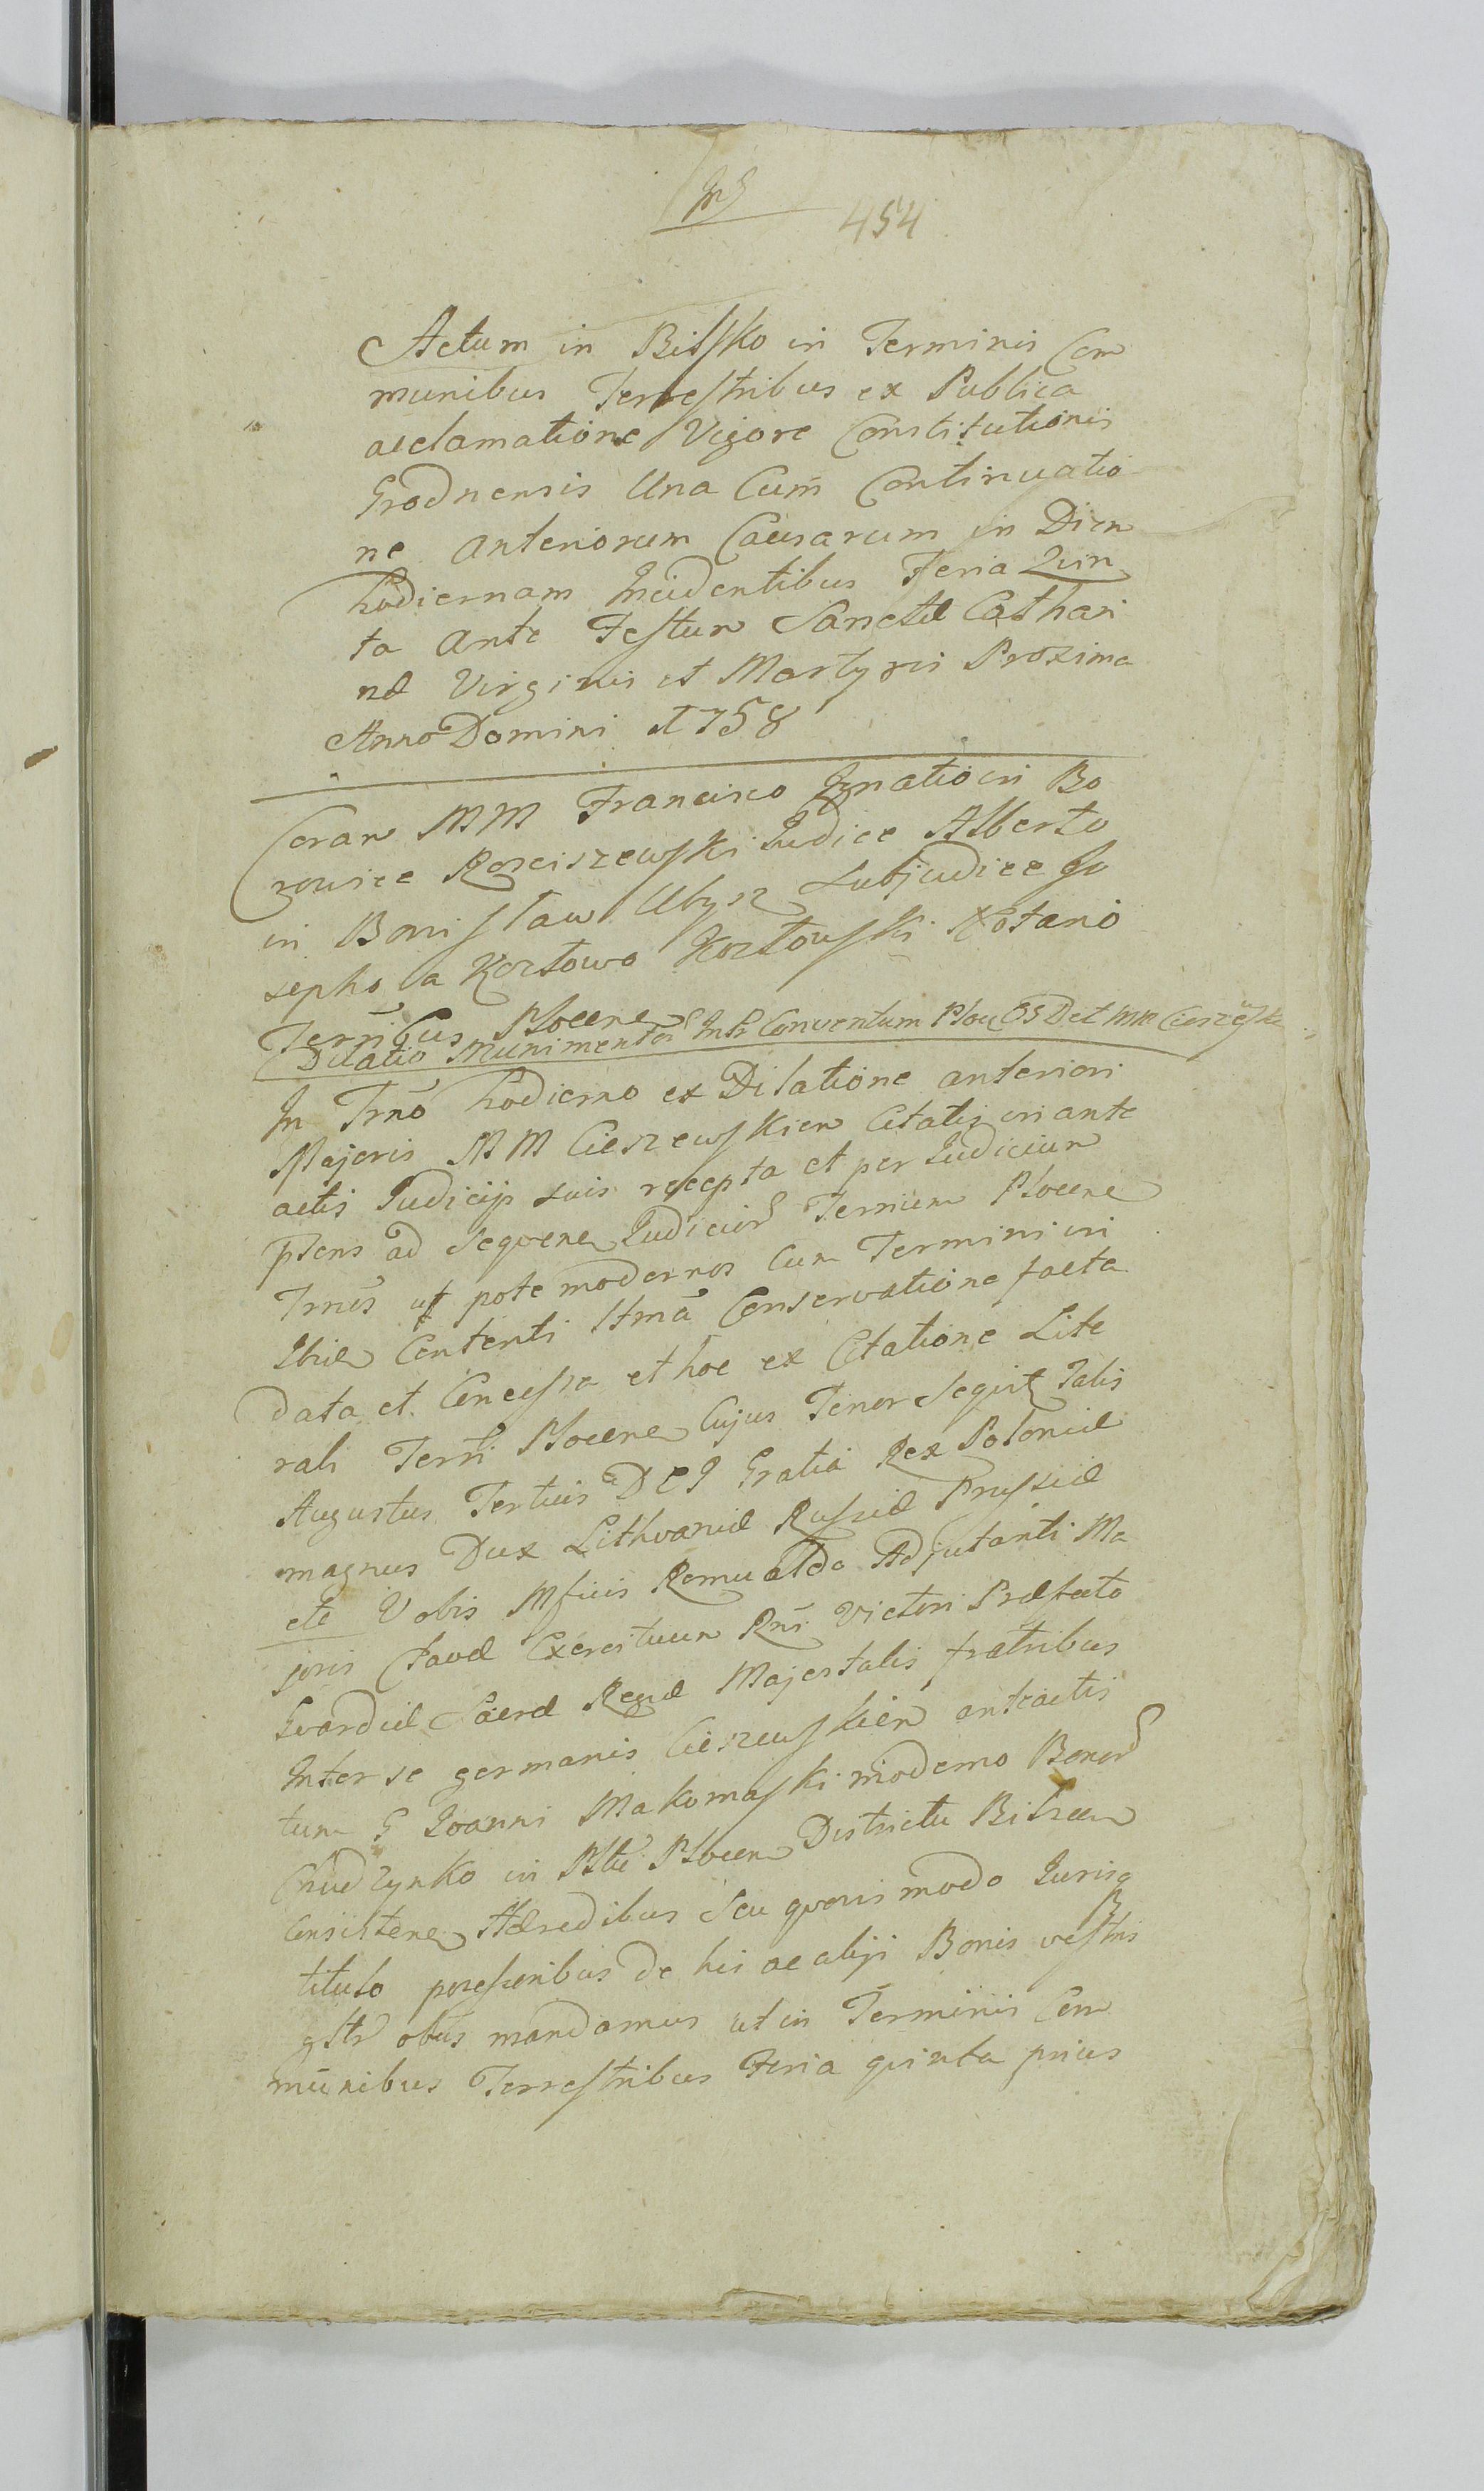 454
Actum in Bilsko in Terminis Com
munibus Terrestribus ex Publica
acclamatione Vigore Constitutionis
Grodnensis Una Cum Continuatio
ne anteriorum Causarum in Diem
hodiernam Incidentibus Feria Quin
ta ante Festum Sanctæ Cathari
næ Virginis et Martyris Proxima
Anno Domini 1758
Coram MM Francisco Ignatio in Bo
rowice Rosciszewski Judice Alberto
in Bonisław Ubysz Subjudice Jo
sepho a Kozłowo Kozłowski Notario
Terribus Plocen
Dilatio Munimentor Intr Conventum Ploc OS Det MM Cieszewsk
In Trno hodierno ex Dilatione anteriori
Majoris MM Cieszewskien Citatis in ante
actis Judicijs suis recepta et per Judicium
pñens ad Sequen Judicior Terrium Plocen
Trnos ut pote modernos Cum Termini in
Ibid Contenti Conservatione facta
data et Concessa et hoc ex Citatione Lite
rali Terri Plocen Cujus Tenor Seqvit Talis
Augustus Tertius DEI Gratia Rex Poloniæ
magnus Dux Lithvaniæ Russiæ Prussiæ
etc Vobis Mficis Romualdo Adjutanti Ma
joris Exercituum Rni Victori Præfecto
Gvardiæ Sacræ Regiæ Majestatis fratribus
Inter se germanis Cieszewskien anteactis
tum G Joanni Makomaski moderno Bonor
Chudzynko in Pltu Plocen Districtu Bilscen
Consisten Hæredibus Seu qvovis modo Juris
titulo possessoribus de his ac alijs Bonis vestris
mandamus ut in Terminis Com
munibus Terrestribus Feria qvinta prius